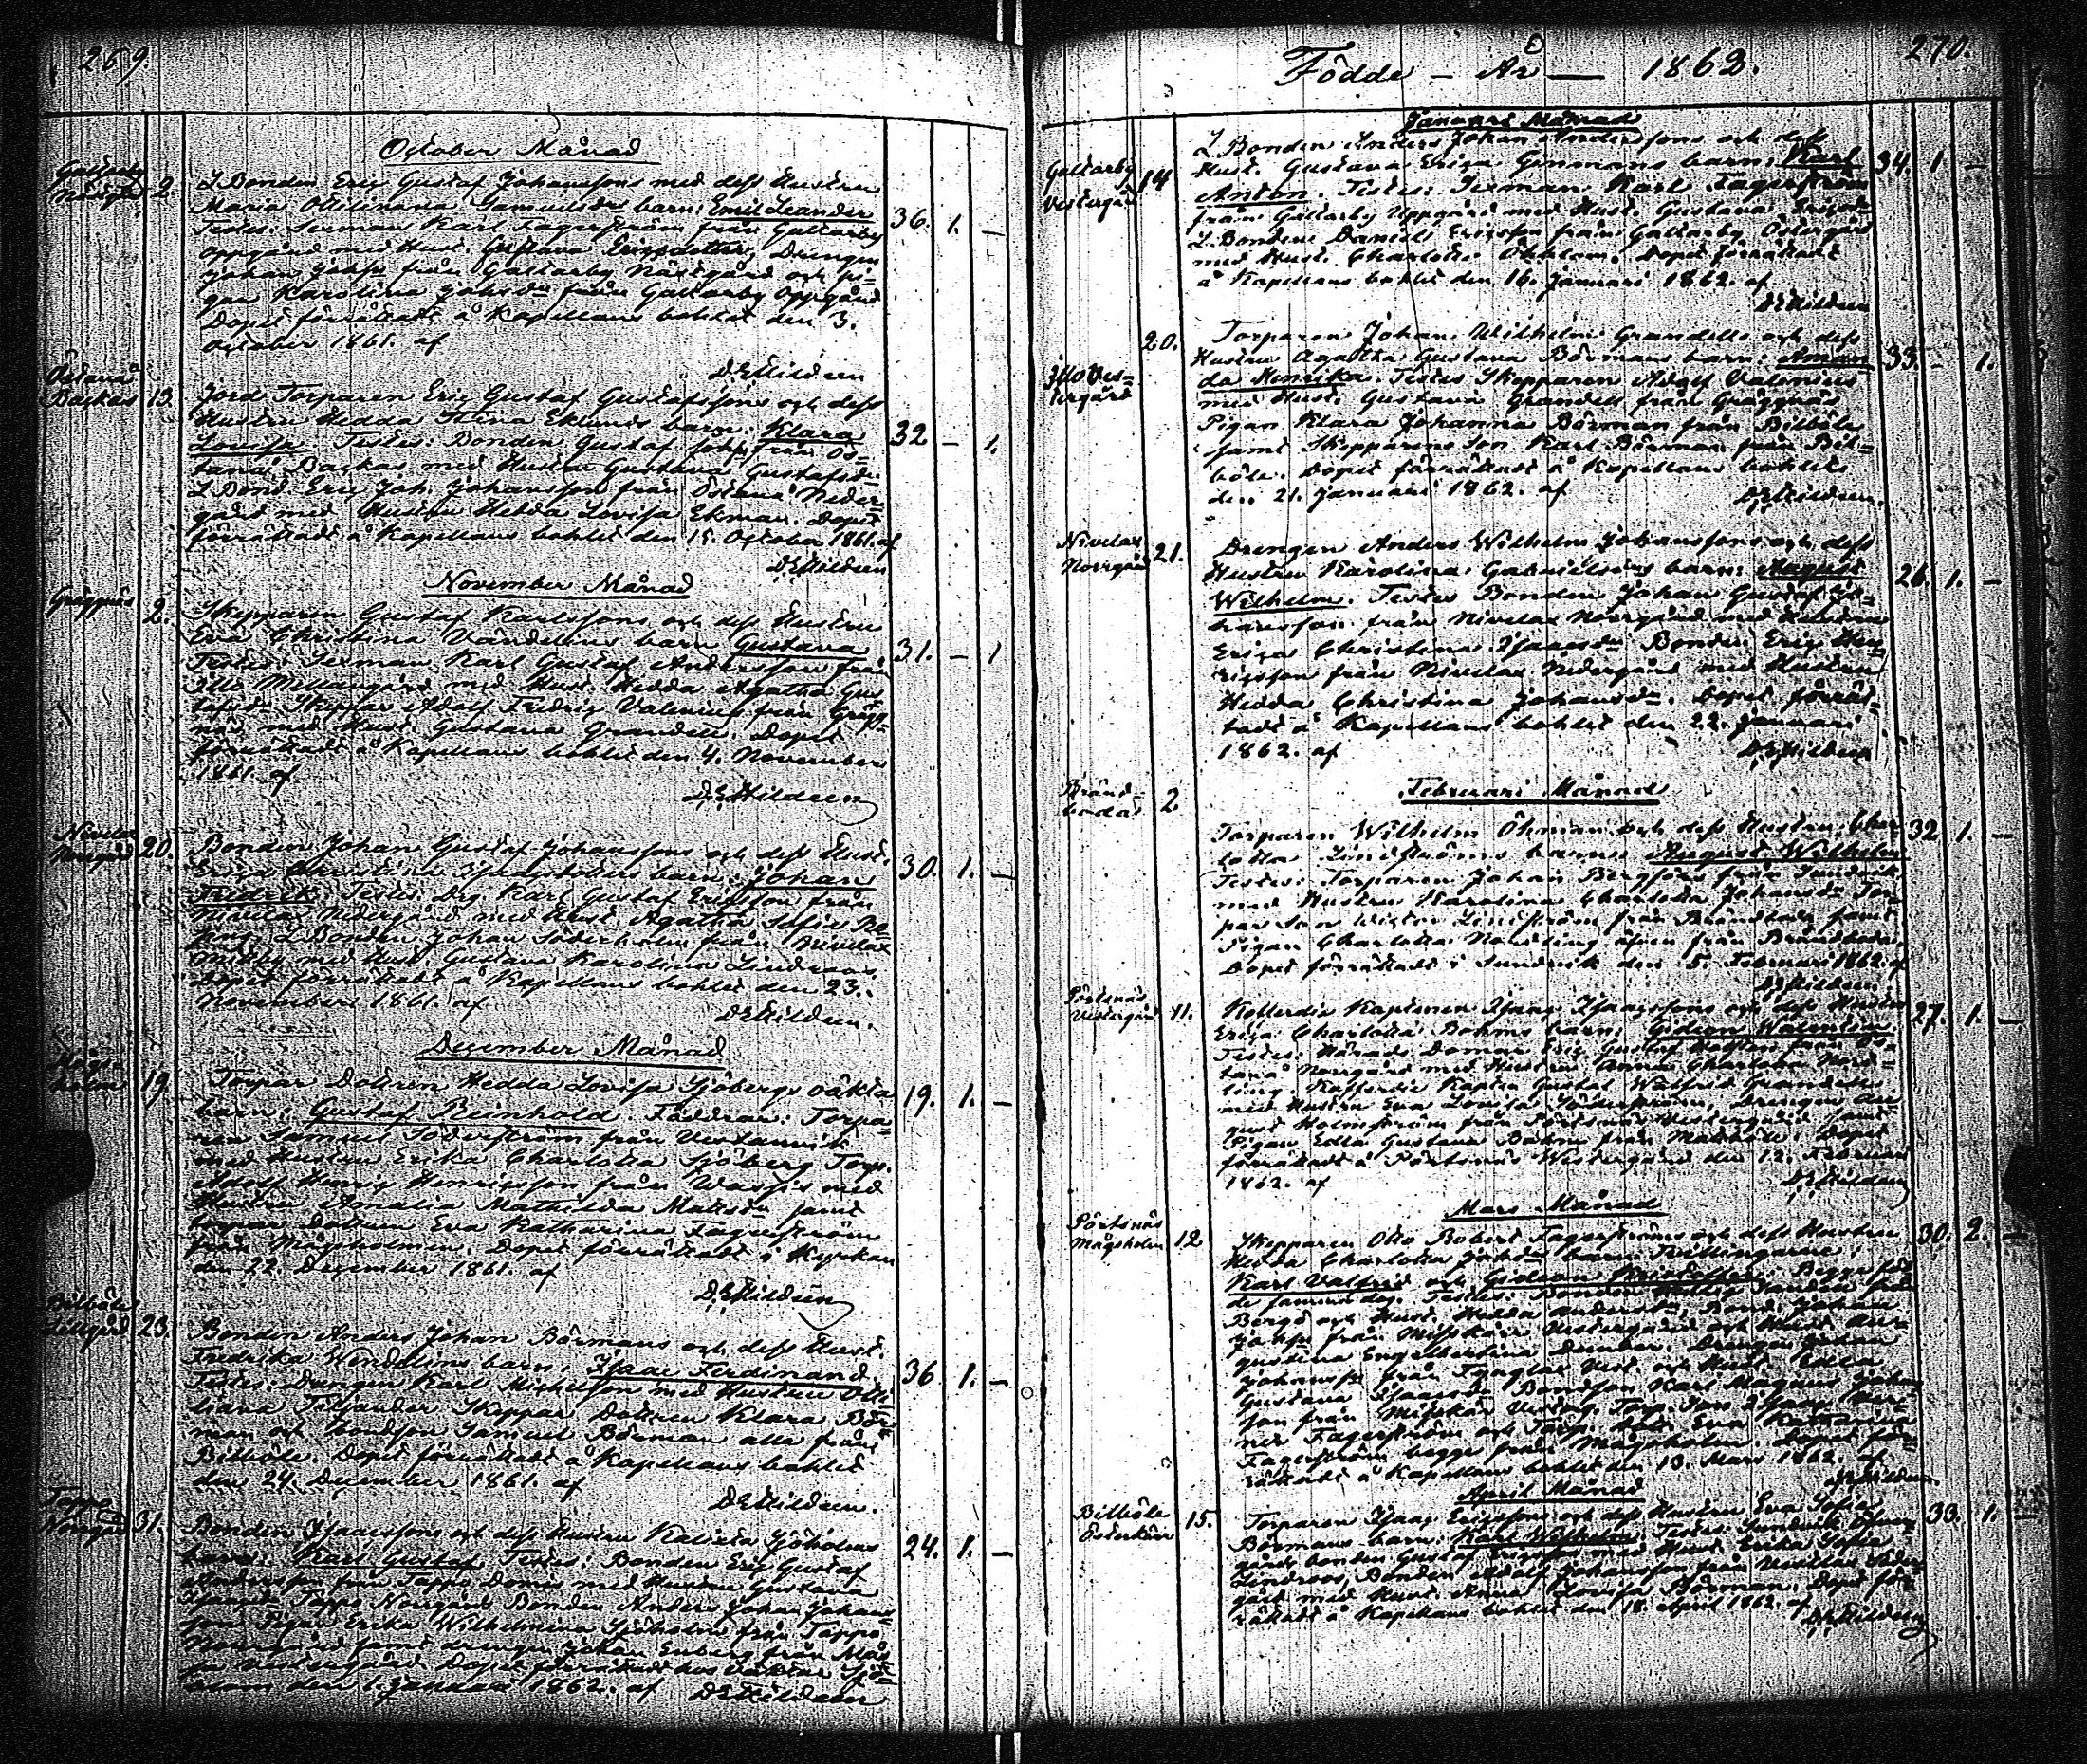 269.
October Månad
Gallarby
Nästgård 2.
L Bonden Eric Gustaf Johanssons med dess Hustru
Maria Ottiliana Samuelsdrs barn: Emil Leander 36. 1. —
Testes: Jerman Karl Fagerström från Gallarby
oppgård med Hust. Gustava Ericsdotter, Drengen
Johan Johss från Gallarby Nästgård och pi-
gan Karolina Johsdr från Gallarby Oppgård
Dopet förrättadt å Kapellans bohlet den 3.
October 1861. af
DEHildeen
Östanå
Backas 13.
Jord Torparen Eric Gustaf Gustafssons och dess
Hustru Hedda Stina Eklunds barn: Klara 32 — 1.
Lovisa Testes: Bonden Gustaf Johss från Ös-
tanå Backas med Hustru Gustava Gustafsdr
L Bond Eric Joh Johansson från Östanå Neder-
gård med Hustru Hedda Lovisa Ekman. Dopet
förrättadt å Kapellans bohlet den 15. October 1861. af
DEHildeen
November Månad
Gräggnäs 2.
Skepparen Gustaf Karlssons och dess Hustru
Eva Christina Vändelins barn Gustava 31. — 1
Testes: Jerman Karl Gustaf Andersson från
Mellangård med Hust. Hedda Agatha Gus
tafsdr Skeppar Adolf Fredric Valenius från Grägg-
näs med Hust Gustava Grandell. Dopet
förrättadt å Kapellans bohlet den 4. November
1861. af
DEHildeen
Nivelax
Norrgård 20.
Bonden Johan Gustaf Johanssons och dess Hust.
Erica Christina Isaacsdotters barn: Johan 30. 1. —
Fredrik Testes: Drg Karl Gustaf Ericsson från
Nivelax Nedergård med Hust. Agatha Sofia
L Bonden Johan Söderholm från Nivelax
med Hust Gustava Karolina Lindroos
Dopet förrättadt å Kapellans bohlet den 23.
November 1861. af
DEHildeen.
December Månad
Mågs-
holm 19.
Torpar Dottren Hedda Lovisa Sjöbergs oäkta 19. 1. —
barn: Gustaf Reinhold. Faddrar: Torpa-
ren Samuel Söderström från
med Hustru Erika Charlotta Sjöberg Torp.
Adolf Henric Henricsson från med
Hustru Amalia Mathilda Matsdr samt
torpar dottren Eva Katharina Fagerström
från Mågsholmen. Dopet förrättadt i Kyrkan
den 22 December 1861. af
DEHildeen
Bilböle 23.
Bonden Anders Johan Börmans och dess Hust.
Fredrika Wendelins barn: Isaac Ferdinand 36. 1. —
Testes: Drengen Karl Michelsson med Hustru Otti
liana Skeppar Dottren Klara Bör-
man och Bondson Samuel Börman alla från
Bilböle. Dopet förrättadt å Kapellans bohlet
den 24. December 1861. af
DEHildeen.
Tappo
Norrgård 31.
Bonden Isaacssons och dess Hustru Sjöholms 24. 1. —
barn: Karl Gustaf Testes: Bonden Eric Gustaf
Andersson från Tappo med Hustru Gustava
Tappo Norrgård Bonden Anders Johan Johans-
son Pigan Erika Wilhelmina Sjöholm från Tappo
Norrgård samt drengen Johan Enberg från
Dopet förrättadt hos
den 1. Januari 1862. af DEHildeen
Födde — År — 1862. 270.
Januari Månad
Gallarby
Vestergård 14
L Bonden Anders Johan Anderssons och dess
Hust. Gustava Erica Genmans barn: Karl 34. 1. —
Anton. Testes: Jerman Karl Fagerström
från Gallarby Uppgård med Hust. Gustava Ericsdr
L. Bonden Daniel Ericsson från Gallarby Östergård
med Hust. Charlotta Öhblom. Dopet förrättadt
å Kapellans bohlet den 16. Januari 1862. af
DEHildeen
20.
Torparen Johan Wilhelm Grandells och dess
Hustru Agatha Gustava Börmans barn: Aman 33. — 1.
da Henrika. Testes Skepparen Adolf Valenius
med Hust. Gustava Grandell från Gräggnäs
Pigan Klara Johanna Börman från Bilböle
samt Skepparens son Karl Börman från Bil-
böle. Dopet förrättadt å Kapellans bohlet
den 21. Januari 1862. af DEHildeen.
Nivelax
Norrgård 21.
Drengen Anders Wilhelm Johanssons och dess
Hustru Karolina Gabrielsdrs barn: August 26. 1. —
Wilhelm. Testes Bonden Johan Gustaf Jo-
hansson från Nivelax Norrgård med Hustru
Erica Christina Isaacsdr Bonden Eric Hen-
ricsson från Nivelax Nedergård med Hustru
Hedda Christina Johansdr. Dopet förrät-
tadt å Kapellans bohlet den 22. Januari
1862. af DEHildeen
Februari Månad
Bränd-
boda 2.
Torparen Wilhelm Öhman och dess Hustru Char- 32 1. —
lotta Lindströms barn: August Wilhelm
Testes: Torparen Johan Bergfors från Sundvik
med Hustru Karolina Charlotta Johansdr Tor-
par son Wictor Lindström från Brändboda samt
Pigan Charlotta Nordling äfven från Brändboda.
Dopet förrättadt i Sundvik den 5. Februari 1862. af
DEHildeen
Pörtsnäs
Vestergård 11.
Kofferdie Kaptenen Isaac Isaacssons och dess Hustru 27. 1. —
Erica Charlotta Bohms barn: Gideon Walentin.
Testes: Härads Domar Eric Gustaf från Ös-
tanå Norrgård med Hustru Anna Charlotta Nord-
ling Kofferdie Kapten Gustaf Walfrid Grandell
med Hustru Eva Lovisa Söderström, Drengen Au-
gust Holmström från Pörtsnäs Westergård samt
Pigan Edla Gustava Bohm från Dopet
förrättadt å Pörtsnäs Westergård den 12. Februari
1862. af DEHildeen
Mars Månad
Pörtsnäs
Mågsholm 12
Skepparen Otto Robert Fagerströms och dess Hustru 30. 2. —
Hedda Charlotta Johsdr barn Tvillingarne:
Karl Valfrid och Gideon Begge föd
de samma dag. Testes: Bonden
Bergö och Hust. Hedda Andersdr, Bond Johan
Johss från Misskärr Vestergård och Hust Au-
gustina Engelbertina Dunder. Drengen Johan
Johansson från och Hust. Edla
Gustava Isaacsdr Bondson Karl Magnus Johans-
son från Misskär Vesterg. Torp. Son Isaac
Fagerström och Torp. dotr Eva Katharina
Fagerström begge från Mågsholm. Dopet för-
rättadt å Kapellans bohlet den 13. Mars 1862. af
DEHildeen
April Månad
Bilböle
Österkärr 15.
Torparen Isaac Ericssons och dess Hustru Eva Sofia 33. 1. —
Börmans barn: Karl Wilhelm. Testes: Sundvik
gårds bonden Gustaf med Hust. Erika Sofia
Lindroos, Bonden Adolf Johansson från Nivelax Neder-
gård med Hust. Anna Lovisa Börman. Dopet för-
rättadt å Kapellans bohlet den 18. April 1862. af
DEHildeen